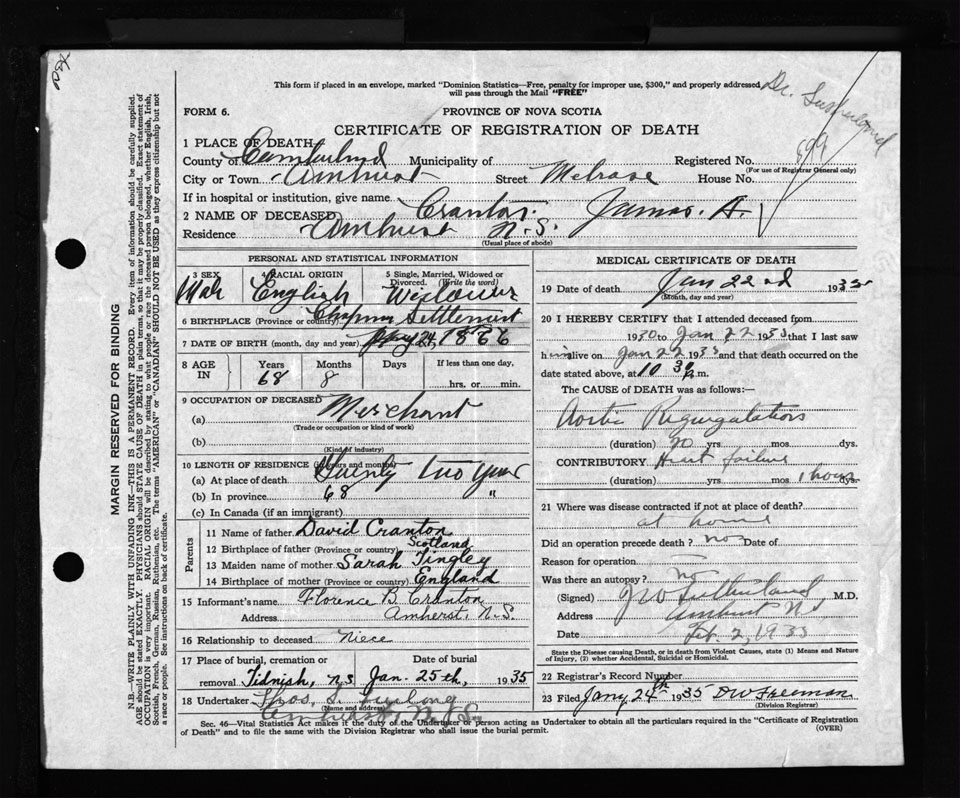 This form if placed in an envelope, marked "Dominion Statistics—Free, penalty for improper use, $300," and properly addressed,
will pass through the Mail "FREE"
Dr. Sutherland
FORM 6. PROVINCE OF NOVA SCOTIA
CERTIFICATE OF REGISTRATION OF DEATH
899
1 PLACE OF DEATH
County of Cumberland Municipality of Registered No.
(For use of Registrar General only)
City or Town Amherst Street Melrose House No.
If in hospital or institution, give name
2 NAME OF DECEASED Cranton, James. A.
Residence Amherst N.S.
(Usual place of abode)
PERSONAL AND STATISTICAL INFORMATION
3 SEX 4 RACIAL ORIGIN 5 Single, Married, Widowed or Divorced. (Write the word)
Male English Widower
6 BIRTHPLACE (Province or country) Chapman Settlement
7 DATE OF BIRTH (month, day and year) 24, 1866
8 AGE IN Years Months Days If less than one day,
68 8 hrs. or min.
9 OCCUPATION OF DECEASED
(a) Merchant
(Trade or occupation or kind of work)
(b)
(Kind of industry)
10 LENGTH OF RESIDENCE (in years and months)
(a) At place of death Twenty two years
(b) In province 68 "
(c) In Canada (if an immigrant)
Parents
11 Name of father David Cranton
12 Birthplace of father (Province or country) Scotland
13 Maiden name of mother Sarah Tingley
14 Birthplace of mother (Province or country) England
15 Informant's name Florence B. Cranton
Address Amherst, N.S.
16 Relationship to deceased Niece
17 Place of burial, cremation or removal Date of burial
Tidnish, N.S Jan. 25th, 1935
18 Undertaker Thos. S. Furlong
(Name and address)
Amherst N.S.
MEDICAL CERTIFICATE OF DEATH
19 Date of death Jan 22nd 1935
(Month, day and year)
20 I HEREBY CERTIFY that I attended deceased from
1930 to Jan 22 1935, that I last saw
him alive on Jan 22 1935 and that death occurred on the
date stated above, at 10 30 p.m.
The CAUSE OF DEATH was as follows:—
Aortic Regurgitation
(duration) 20 yrs. mos. dys.
CONTRIBUTORY Heart failure
(duration) yrs. mos. 1 hours dys.
21 Where was disease contracted if not at place of death?
at home
Did an operation precede death? no Date of
Reason for operation
Was there an autopsy? no
(Signed) J W Sutherland, M.D.
Address Amherst NS
Date Feb. 2, 1935
State the Disease causing Death, or in death from Violent Causes, state (1) Means and Nature
of Injury, (2) whether Accidental, Suicidal or Homicidal.
22 Registrar's Record Number
23 Filed Jany 24th 1935 DW Freeman
(Division Registrar)
Sec. 46—Vital Statistics Act makes it the duty of the Undertaker or person acting as Undertaker to obtain all the particulars required in the "Certificate of Registration
of Death" and to file the same with the Division Registrar who shall issue the burial permit. (OVER)
MARGIN RESERVED FOR BINDING
N.B.—WRITE PLAINLY WITH UNFADING INK—THIS IS A PERMANENT RECORD. Every item of information should be carefully supplied.
AGE should be stated EXACTLY. PHYSICIANS should STATE CAUSE OF DEATH in plain terms, so that it may be properly classified. Exact statement of
OCCUPATION is very important. RACIAL ORIGIN will be described by stating to what people or race the deceased person belonged, whether English, Irish,
Scottish, French, German, Russian, Ruthenian, etc. The terms "AMERICAN" or "CANADIAN" SHOULD NOT BE USED as they express citizenship but not
a race or people. See instructions on back of certificate.